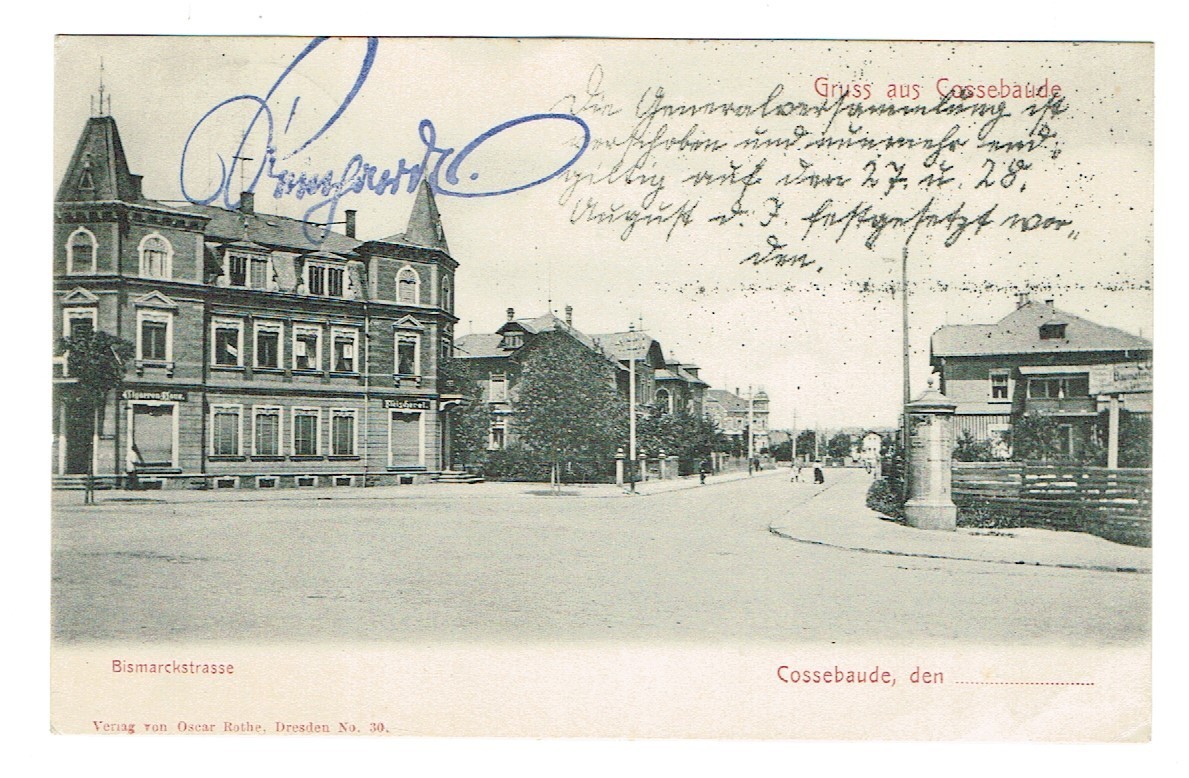 Gruss aus Cossebaude
Die Generalversammlung ist
verschoben und nunmehr end-
giltig auf den 27. u. 28.
August d. J. festgesetzt wor-
den.
Cigarren-Haus.
Fleischerei.
Bismarckstrasse
Cossebaude, den
Verlag von Oscar Rothe, Dresden No. 30.